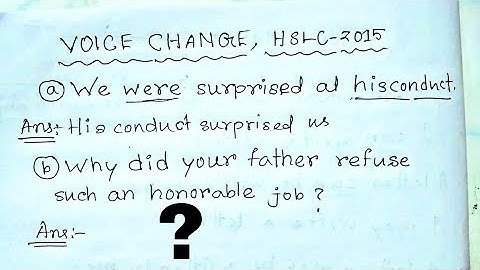 VOICE CHANGE, HSLC-2015
(a) We were surprised at hisconduct.
Ans:- His conduct surprised us
(b) Why did your father refuse
such an honorable job?
Ans:- ?